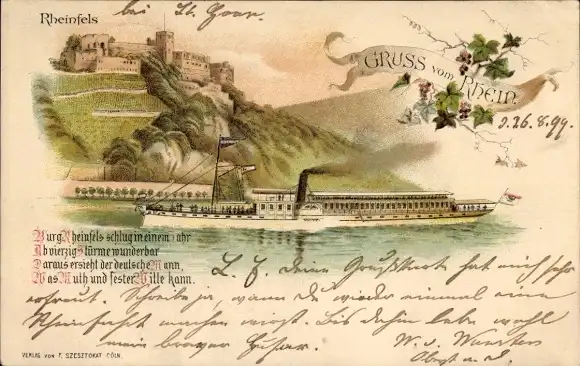 Rheinfels
bei St. Goar.
GRUSS vom RHEIN.
d. 26.8.99.
Burg Rheinfels schlug in einem Jahr
Ab vierzig Stürme wunderbar
Daraus ersieht der deutsche Mann,
Was Muth und fester Wille kann.
L. F. deine Grußkarte hat mich sehr
erfreut. Schreibe ja, wann du wieder einmal eine
Rheinfahrt machen wirst. Bis dahin lebe wohl
mein braver
W. v.
Oberst a. D.
VERLAG VON F. SZESZTOKAT CÖLN.